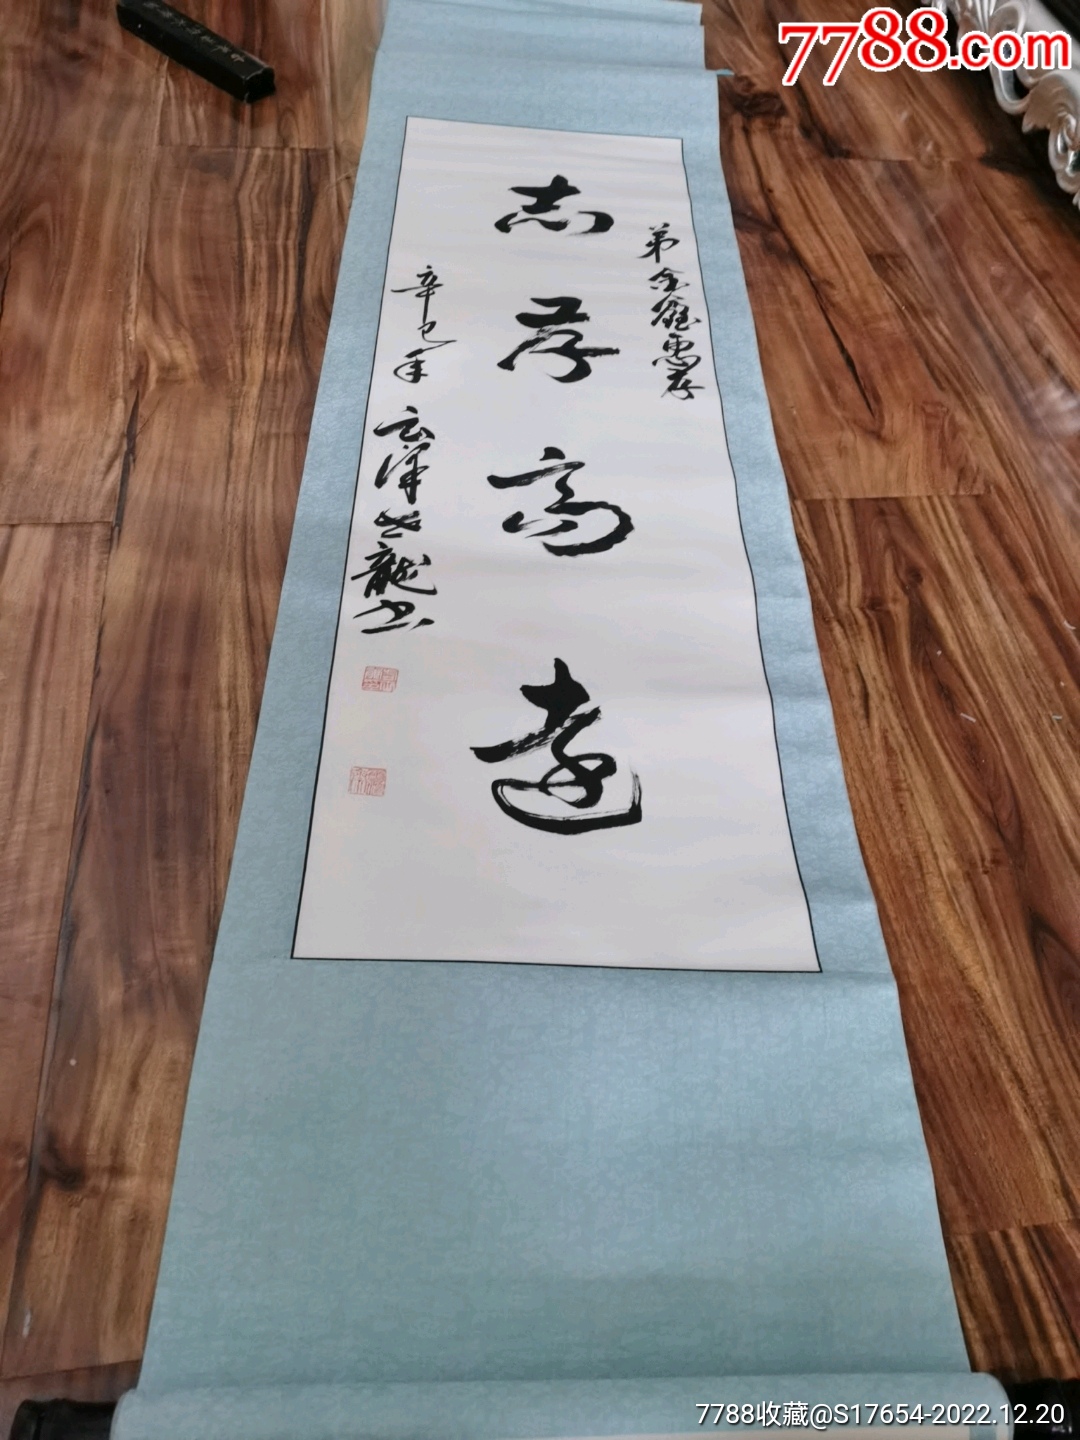 7788.com
弟金鑫惠存
志存高远
辛巳年
龙书
7788收藏@S17654-2022.12.20